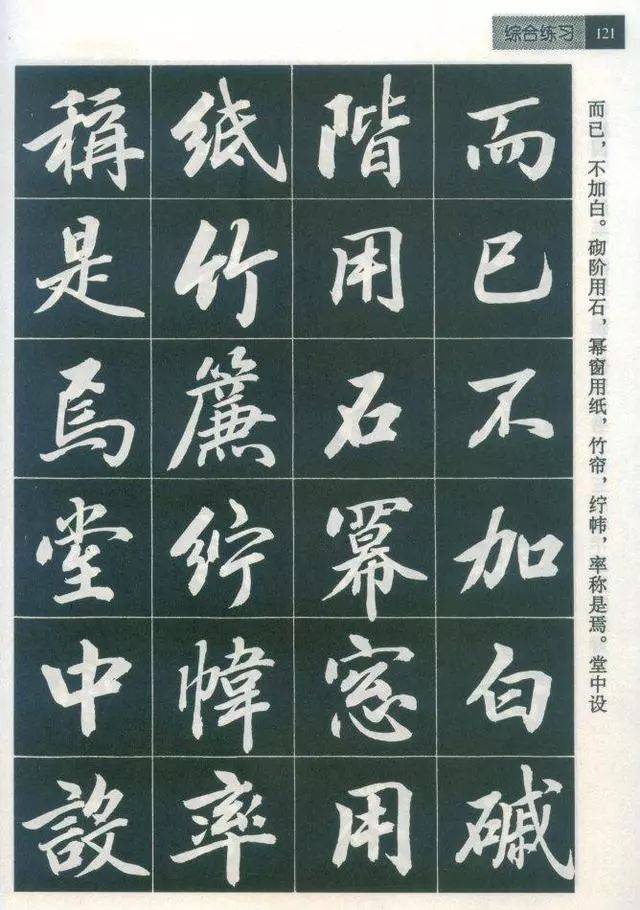 综合练习 121
而已，不加白。砌阶用石，幂窗用纸，竹帘，纻帏，率称是焉。堂中设
而已不加白碱
階用石幂窓用
紙竹簾紵幃率
稱是焉堂中設